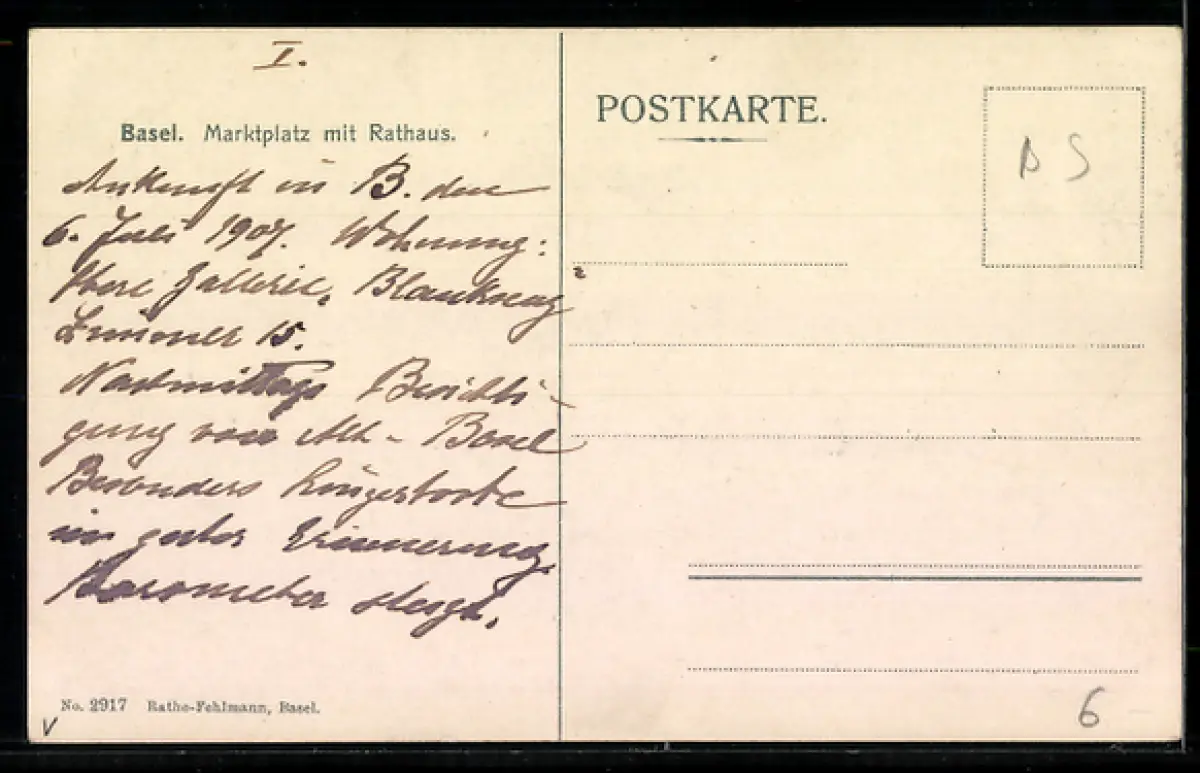 I.
Basel. Marktplatz mit Rathaus.
Ankunft in B. den
6. Juli 1907. Wohnung:
Gallerie,
Zimmer 15.
Nachmittags Besichti-
gung von Alt-Basel
Besonders
in guter Erinnerung.
Barometer steigt.
No. 2917 Rathe-Fehlmann, Basel.
V
POSTKARTE.
B S
6